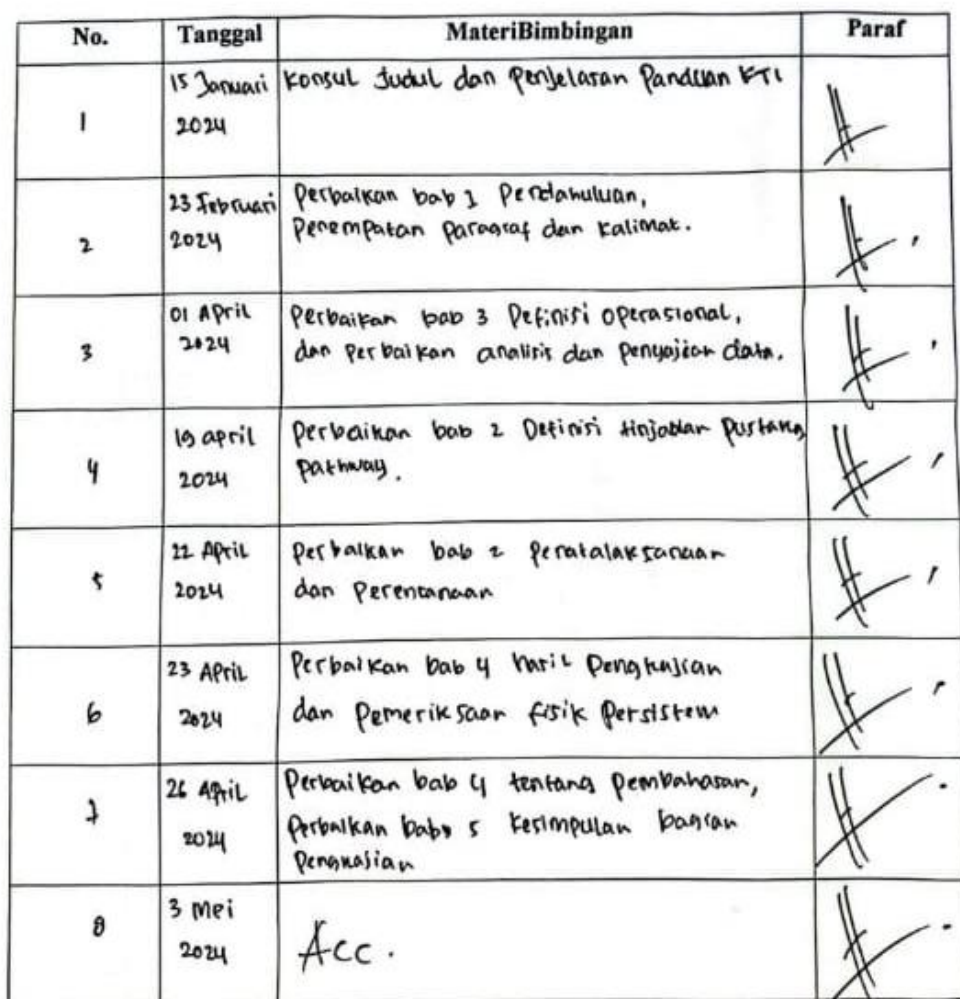 No. Tanggal MateriBimbingan Paraf
1 15 Januari 2024 Konsul Judul dan Penjelasan Panduan KTI
2 23 Februari 2024 Perbaikan bab 1 Pendahuluan,
Penempatan Paragraf dan Kalimat.
3 01 April 2024 Perbaikan bab 3 Definisi Operasional,
dan Perbaikan analisis dan Penyajian data.
4 19 april 2024 Perbaikan bab 2 Definisi
Pathway.
5 22 April 2024 Perbaikan bab 2 Penatalaksanaan
dan Perencanaan
6 23 April 2024 Perbaikan bab 4 hasil Pengkajian
dan Pemeriksaan fisik Persistem
7 26 April 2024 Perbaikan bab 4 tentang Pembahasan,
Perbaikan bab 5 Kesimpulan bagian
Pengkajian
8 3 Mei 2024 Acc.